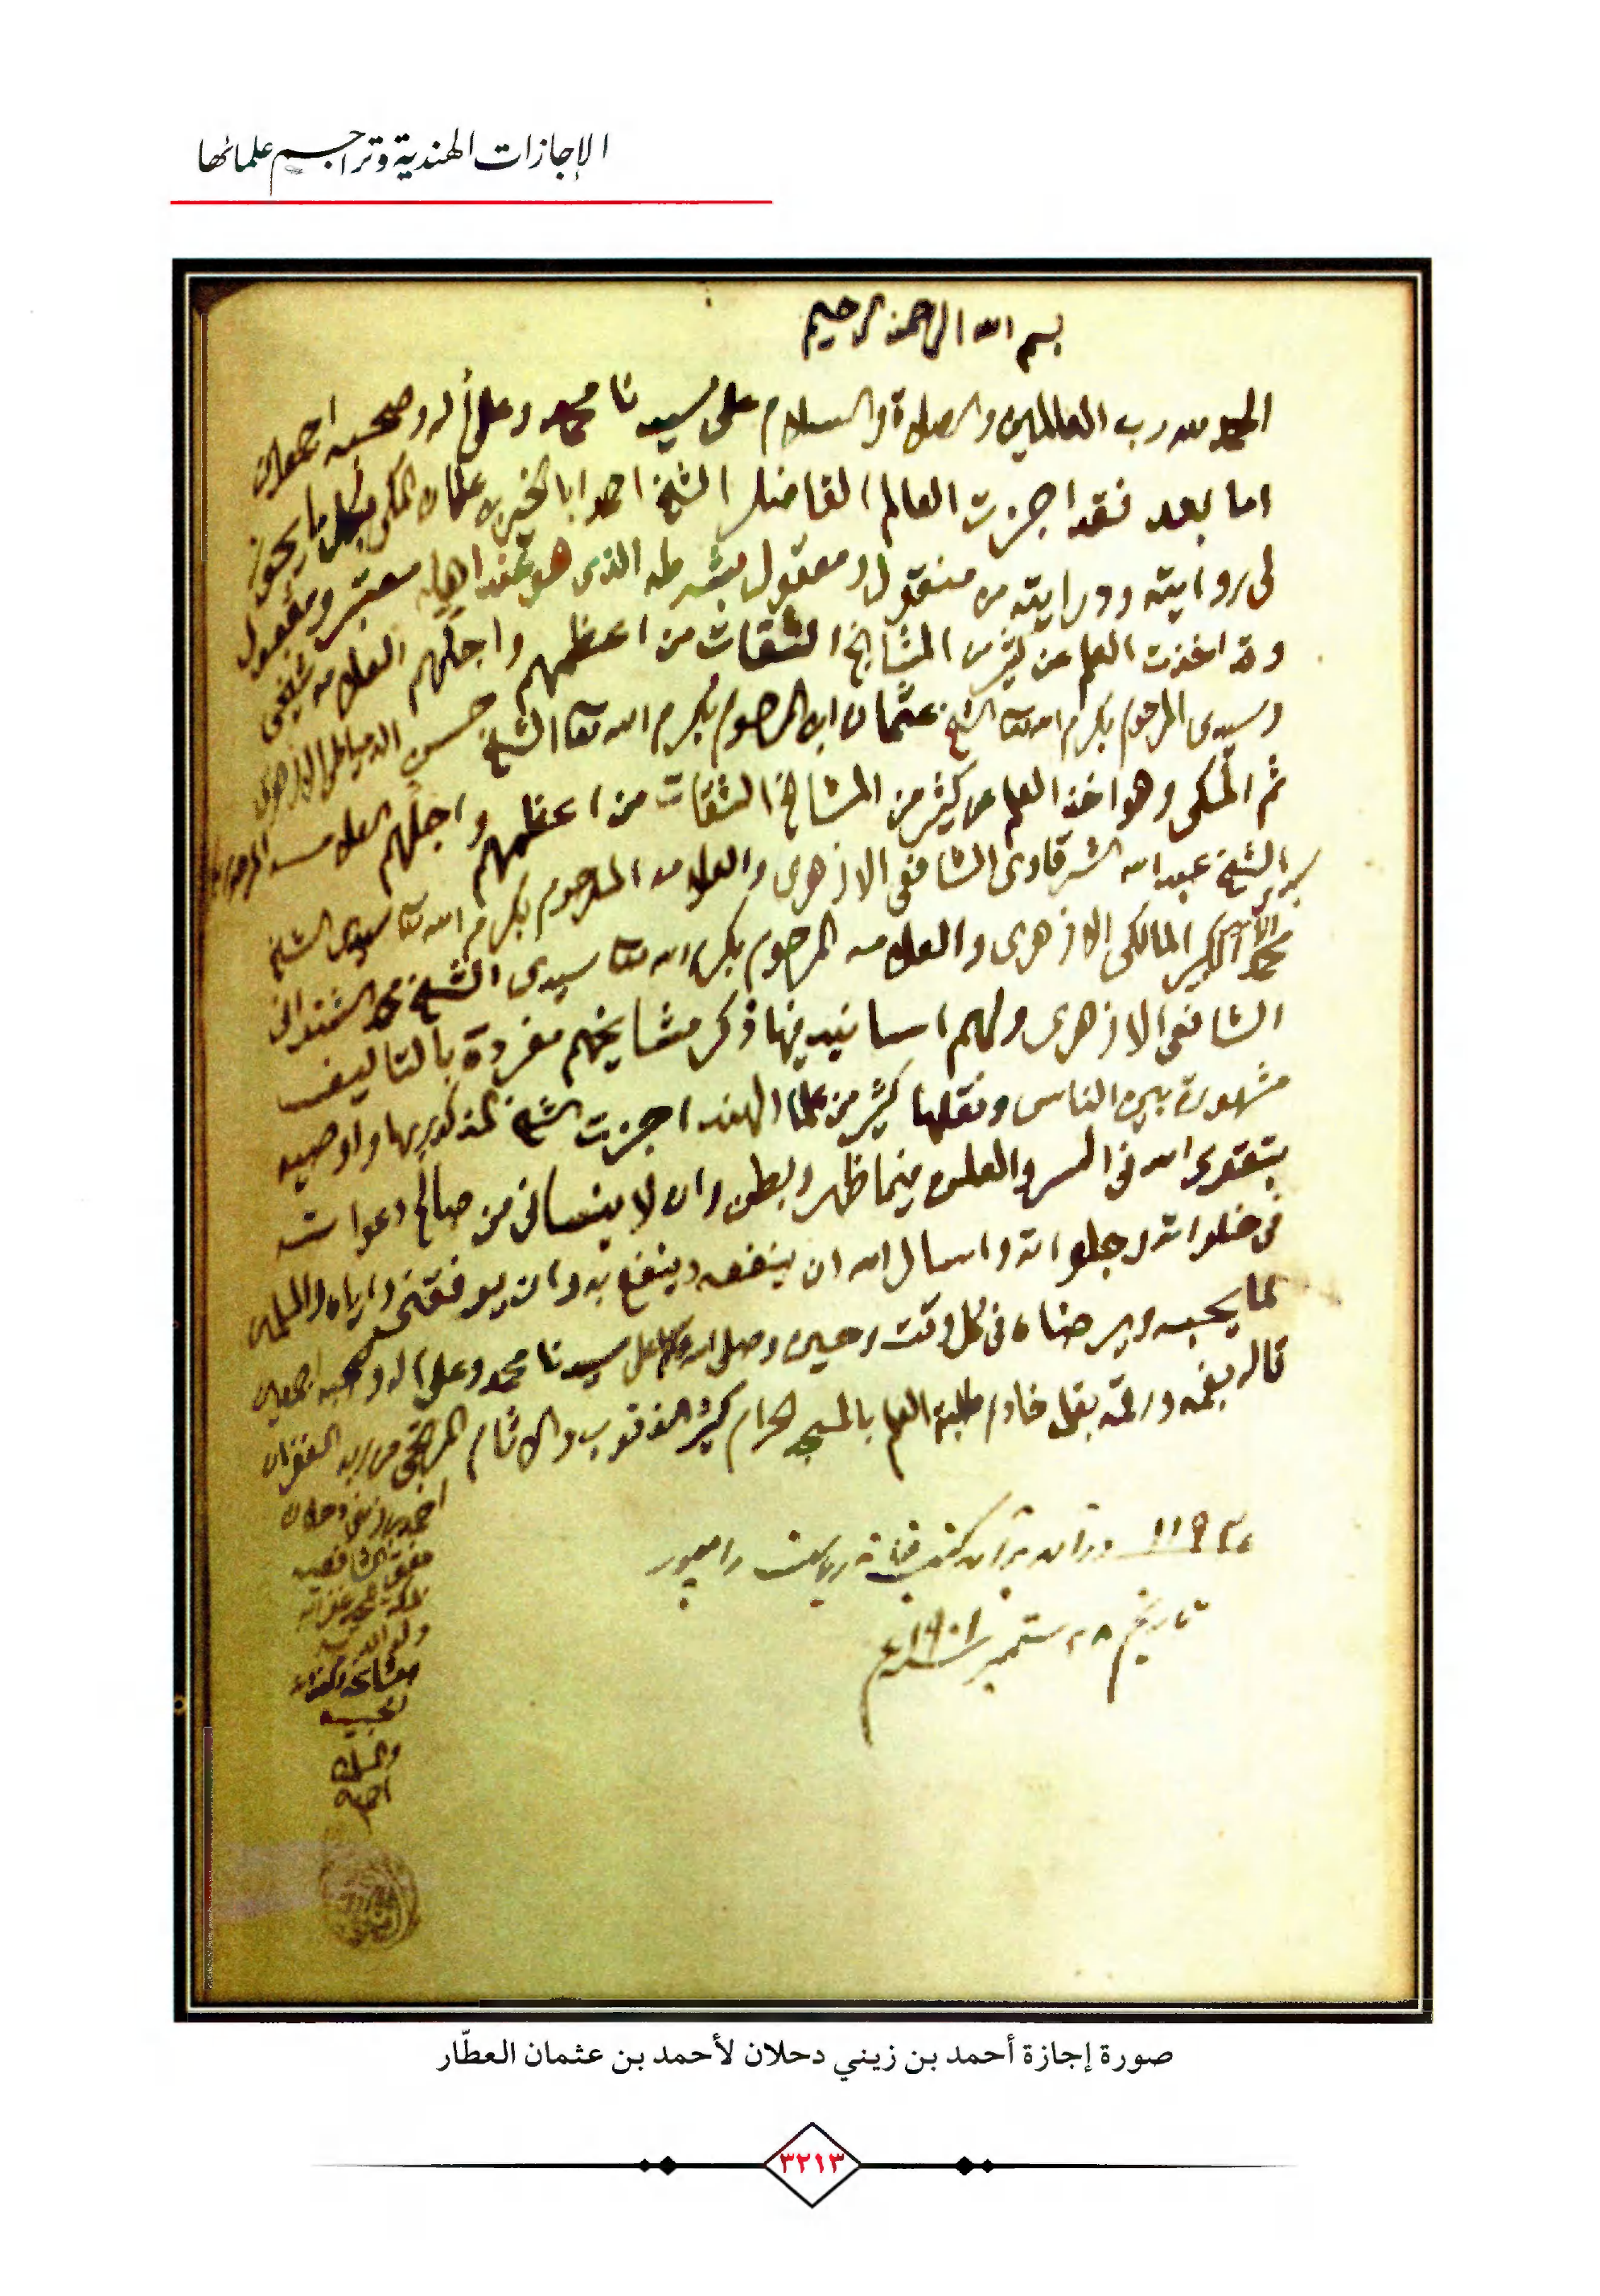 الإجازات الهندية وتراجم علمائها
بسم الله الرحمن الرحيم
الحمد لله رب العالمين والصلاة والسلام على سيدنا محمد وعلى آله وصحبه اجمعين
اما بعد فقد اجزت العالم الفاضل الشيخ احمد ابا الخير بن عثمان المكي بكل ما يجوز
لي روايته ودرايته من منقول ومعقول بشرطه الذي هو عند اهله معتبر ومقبول
وقد اخذت العلم عن كثير من المشايخ الثقات من اعظمهم واجلهم العلامه شيخي
وسيدي المرحوم بكرم الله تعا الشيخ عثمان ابن المرحوم بكرم الله تعا الشيخ حسن الدمياطي الازهري
ثم المكي وهو اخذ العلم عن كثير من المشايخ الثقات من اعظمهم واجلهم العلامه
الشيخ عبد الله الشرقاوي الشافعي الازهري والعلامه المرحوم بكرم الله تعا سيدي الشيخ
محمد الامير الكبير المالكي الازهري والعلامه المرحوم بكرم الله تعا سيدي الشيخ محمد الشنواني
الشافعي الازهري ولهم اسانيد فيها ذكر مشايخهم مفردة بالتاليف
مشهورة بين الناس ونقلها كثير من علما الهند اجزت الشيخ المذكور بها واوصيه
بتقوى الله في السر والعلن فيما ظهر وبطن وان لا ينساني من صالح دعواته
في خلواته وجلواته واسال الله ان ينفعه وينفع به وان يوفقني واياه والمسلمين
لما يحبه ويرضاه في كل وقت وحين وصلى الله وسلم على سيدنا محمد وعلى آله وصحبه اجمعين
قاله بفمه ورقمه بقلمه خادم طلبة العلم بالمسجد الحرام كثير الذنوب والاثام المرتجى من ربه الغفران
احمد بن زيني دحلان
مفتي الشافعيه
بمكة المحميه غفر الله
له ولوالديه
ومشايخه
ومحبيه
والمسلمين
اجمعين
كتب خانه رياست رامپور
تاريخ ٢٨ ستمبر سنه ١٩٠١ع
صورة إجازة أحمد بن زيني دحلان لأحمد بن عثمان العطّار
٣٢١٣